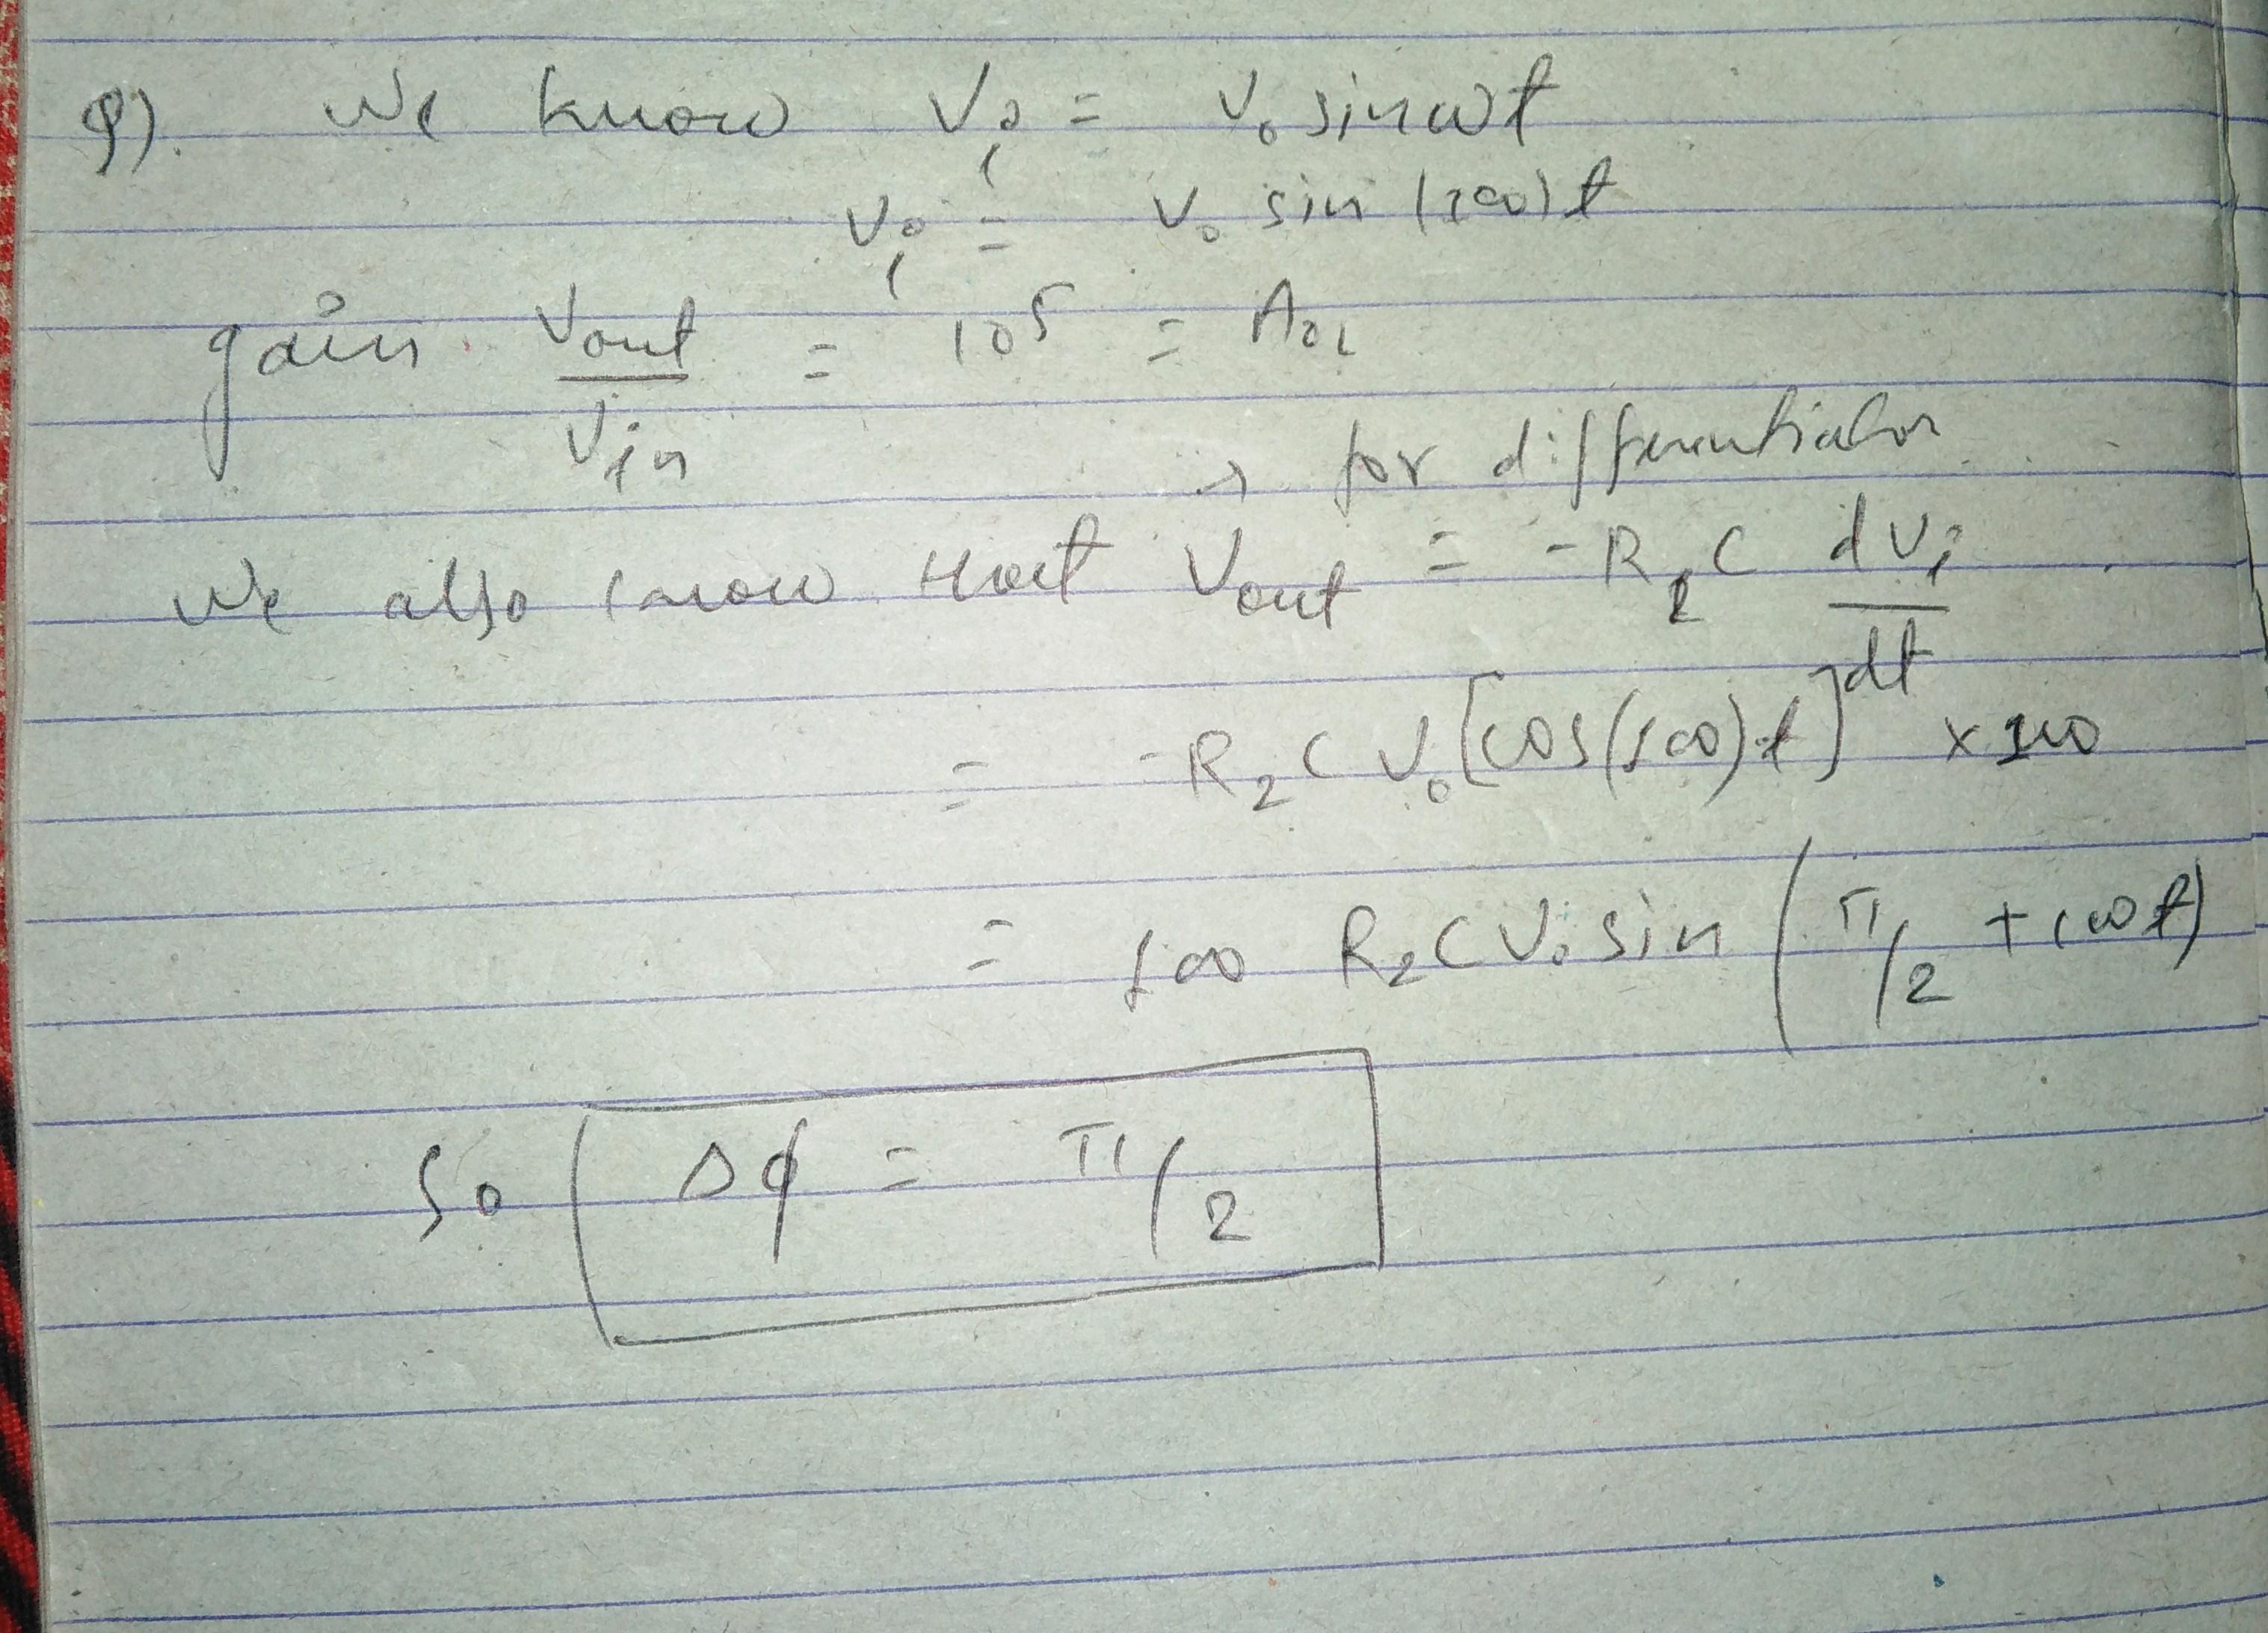 Q). We know Vi = V₀ sinωt
Vi = V₀ sin (100)t
gain Vout / Vin = 10⁵ = AOL
→ for differentiator
We also know that Vout = -R₂C dVi / dt
= -R₂CV₀[cos(100)t] × 100
= 100 R₂CV₀ sin (π/2 + ωt)
So Δφ = π/2